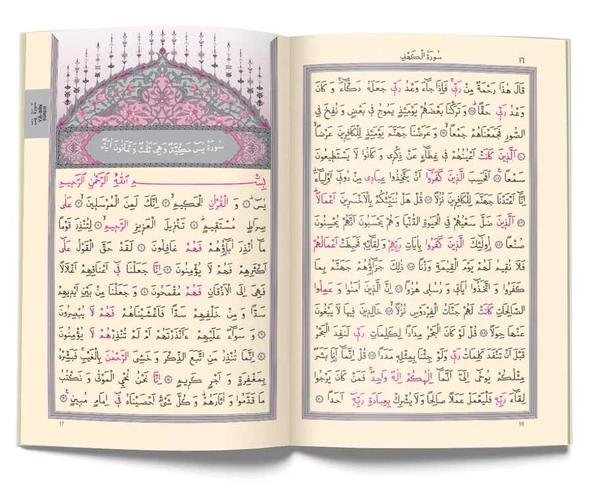 سُورَةُ الْكَهْفِ
١٦
قَالَ هٰذَا رَحْمَةٌ مِنْ رَبِّي فَاِذَا جَاءَ وَعْدُ رَبِّي جَعَلَهُ دَكَّاءَ وَكَانَ
وَعْدُ رَبِّي حَقًّا وَتَرَكْنَا بَعْضَهُمْ يَوْمَئِذٍ يَمُوجُ فِي بَعْضٍ وَنُفِخَ فِي
الصُّورِ فَجَمَعْنَاهُمْ جَمْعًا وَعَرَضْنَا جَهَنَّمَ يَوْمَئِذٍ لِلْكَافِرِينَ عَرْضًا
الَّذِينَ كَانَتْ اَعْيُنُهُمْ فِي غِطَاءٍ عَنْ ذِكْرِي وَكَانُوا لَا يَسْتَطِيعُونَ
سَمْعًا اَفَحَسِبَ الَّذِينَ كَفَرُوا اَنْ يَتَّخِذُوا عِبَادِي مِنْ دُونِي اَوْلِيَاءَ
اِنَّا اَعْتَدْنَا جَهَنَّمَ لِلْكَافِرِينَ نُزُلًا قُلْ هَلْ نُنَبِّئُكُمْ بِالْاَخْسَرِينَ اَعْمَالًا
الَّذِينَ ضَلَّ سَعْيُهُمْ فِي الْحَيٰوةِ الدُّنْيَا وَهُمْ يَحْسَبُونَ اَنَّهُمْ يُحْسِنُونَ
صُنْعًا اُولٰئِكَ الَّذِينَ كَفَرُوا بِاٰيَاتِ رَبِّهِمْ وَلِقَائِهِ فَحَبِطَتْ اَعْمَالُهُمْ
فَلَا نُقِيمُ لَهُمْ يَوْمَ الْقِيٰمَةِ وَزْنًا ذٰلِكَ جَزَاؤُهُمْ جَهَنَّمُ بِمَا
كَفَرُوا وَاتَّخَذُوا اٰيَاتِي وَرُسُلِي هُزُوًا اِنَّ الَّذِينَ اٰمَنُوا وَعَمِلُوا
الصَّالِحَاتِ كَانَتْ لَهُمْ جَنَّاتُ الْفِرْدَوْسِ نُزُلًا خَالِدِينَ فِيهَا لَا يَبْغُونَ
عَنْهَا حِوَلًا قُلْ لَوْ كَانَ الْبَحْرُ مِدَادًا لِكَلِمَاتِ رَبِّي لَنَفِدَ الْبَحْرُ
قَبْلَ اَنْ تَنْفَدَ كَلِمَاتُ رَبِّي وَلَوْ جِئْنَا بِمِثْلِهِ مَدَدًا قُلْ اِنَّمَا اَنَا بَشَرٌ
مِثْلُكُمْ يُوحٰى اِلَيَّ اَنَّمَا اِلٰهُكُمْ اِلٰهٌ وَاحِدٌ فَمَنْ كَانَ يَرْجُوا
لِقَاءَ رَبِّهِ فَلْيَعْمَلْ عَمَلًا صَالِحًا وَلَا يُشْرِكْ بِعِبَادَةِ رَبِّهِ اَحَدًا
16
سُورَةُ يٰسٓ مَكِّيَّةٌ وَهِيَ ثَلٰثٌ وَثَمَانُونَ اٰيَةً
بِسْمِ اللّٰهِ الرَّحْمٰنِ الرَّحِيمِ
يٰسٓ وَالْقُرْاٰنِ الْحَكِيمِ اِنَّكَ لَمِنَ الْمُرْسَلِينَ عَلٰى
صِرَاطٍ مُسْتَقِيمٍ تَنْزِيلَ الْعَزِيزِ الرَّحِيمِ لِتُنْذِرَ قَوْمًا
مَا اُنْذِرَ اٰبَاؤُهُمْ فَهُمْ غَافِلُونَ لَقَدْ حَقَّ الْقَوْلُ عَلٰى
اَكْثَرِهِمْ فَهُمْ لَا يُؤْمِنُونَ اِنَّا جَعَلْنَا فِي اَعْنَاقِهِمْ اَغْلَالًا
فَهِيَ اِلَى الْاَذْقَانِ فَهُمْ مُقْمَحُونَ وَجَعَلْنَا مِنْ بَيْنِ اَيْدِيهِمْ
سَدًّا وَمِنْ خَلْفِهِمْ سَدًّا فَاَغْشَيْنَاهُمْ فَهُمْ لَا يُبْصِرُونَ
وَسَوَاءٌ عَلَيْهِمْ ءَاَنْذَرْتَهُمْ اَمْ لَمْ تُنْذِرْهُمْ لَا يُؤْمِنُونَ
اِنَّمَا تُنْذِرُ مَنِ اتَّبَعَ الذِّكْرَ وَخَشِيَ الرَّحْمٰنَ بِالْغَيْبِ فَبَشِّرْهُ
بِمَغْفِرَةٍ وَاَجْرٍ كَرِيمٍ اِنَّا نَحْنُ نُحْيِ الْمَوْتٰى وَنَكْتُبُ
مَا قَدَّمُوا وَاٰثَارَهُمْ وَكُلَّ شَيْءٍ اَحْصَيْنَاهُ فِي اِمَامٍ مُبِينٍ
17